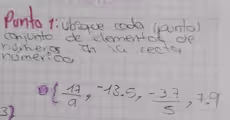 Punto 1: ubique cada (punto)
conjunto de elementos de
números en la recta
numérica
{ 17/9, -13.5, -37/5, 7.9
3}